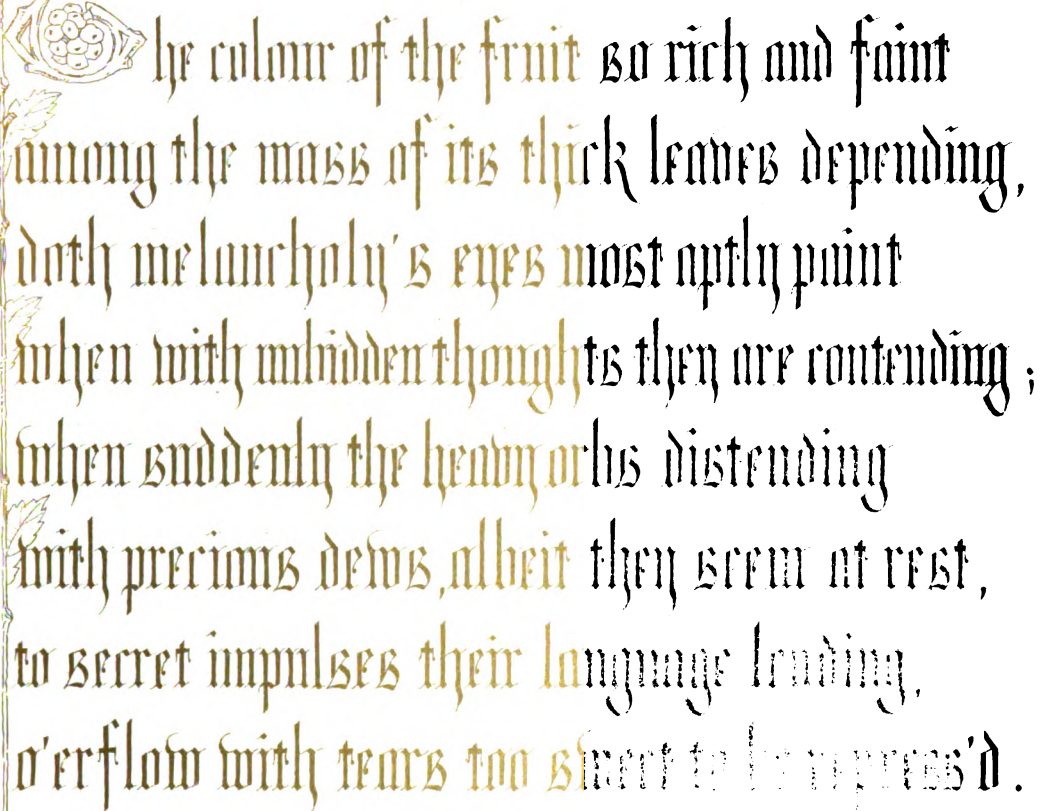 The colour of the fruit so rich and faint
among the mass of its thick leaves depending,
doth melancholy's eyes most aptly paint
when with unbidden thoughts they are contending;
when suddenly the heavy orbs distending
with precious dews, albeit they seem at rest,
to secret impulses their language lending,
o'erflow with tears too sweet to be repress'd.